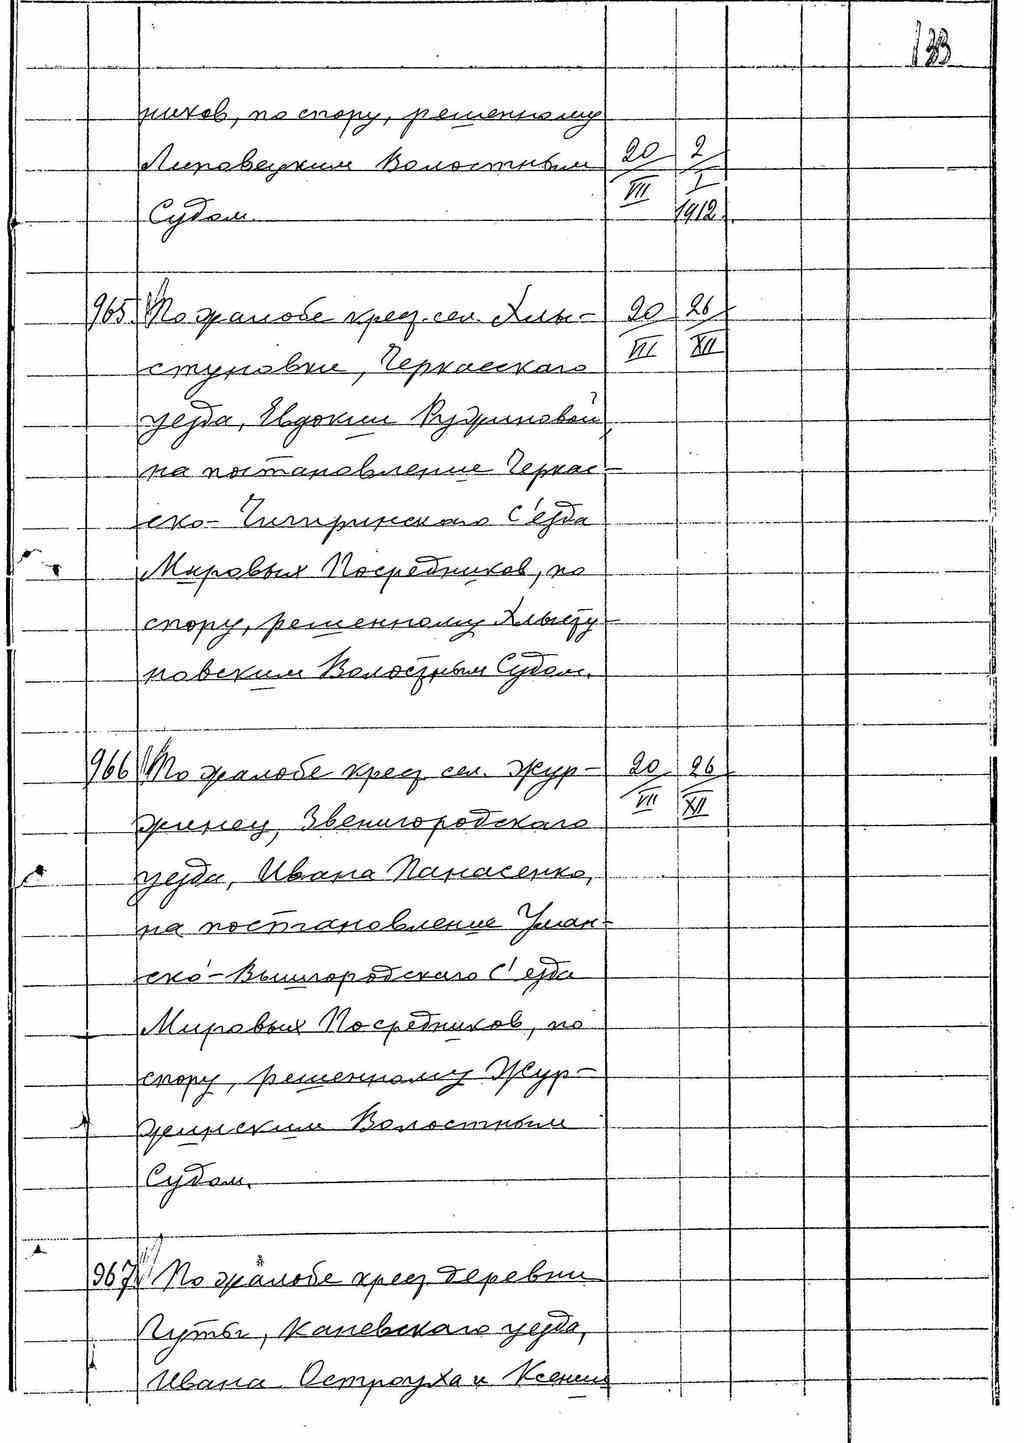 133
ников, по спору, решенному
Липовецким Волостным 20/VII 2/I
Судом. 1912.
965. По жалобе крест. сел. Хлы- 20/VII 26/XII
стуновки, Черкасского
уезда, Евдокии
на постановление Черкас-
ско-Чигиринского С'езда
Мировых Посредников, по
спору, решенному Хлысту-
новским Волостным Судом.
966 По жалобе крест. сел. Жур- 20/VII 26/XII
жинец, Звенигородского
уезда, Ивана Панасенко,
на постановление Уман-
ско-Вышгородского С'езда
Мировых Посредников, по
спору, решенному Жур-
жинским Волостным
Судом.
967 По жалобе крест. деревни
Гуты, Каневского уезда,
Ивана Остроуха и Ксении